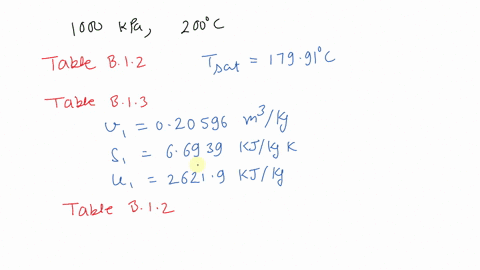 1000 kPa, 200°C
Table B.1.2 Tsat = 179.91°C
Table B.1.3
v₁ = 0.20596 m³/kg
S₁ = 6.6939 KJ/kg K
u₁ = 2621.9 KJ/kg
Table B.1.2